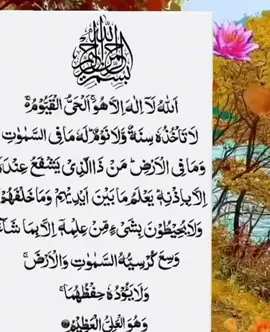 بسم الله الرحمن الرحيم
اَللّٰهُ لَآ اِلٰهَ اِلَّا هُوَ ۚ اَلْحَیُّ الْقَیُّوْمُ ۚ
لَا تَاْخُذُهٗ سِنَةٌ وَّلَا نَوْمٌ ؕ لَهٗ مَا فِی السَّمٰوٰتِ
وَمَا فِی الْاَرْضِ ؕ مَنْ ذَا الَّذِیْ یَشْفَعُ عِنْدَهٗ
اِلَّا بِاِذْنِهٖ ؕ یَعْلَمُ مَا بَیْنَ اَیْدِیْهِمْ وَمَا خَلْفَهُمْ
وَلَا یُحِیْطُوْنَ بِشَیْءٍ مِّنْ عِلْمِهٖٓ اِلَّا بِمَا شَآءَ
وَسِعَ كُرْسِیُّهُ السَّمٰوٰتِ وَالْاَرْضَ ۚ
وَلَا یَـُٔوْدُهٗ حِفْظُهُمَا ۚ
وَهُوَ الْعَلِیُّ الْعَظِیْمُ